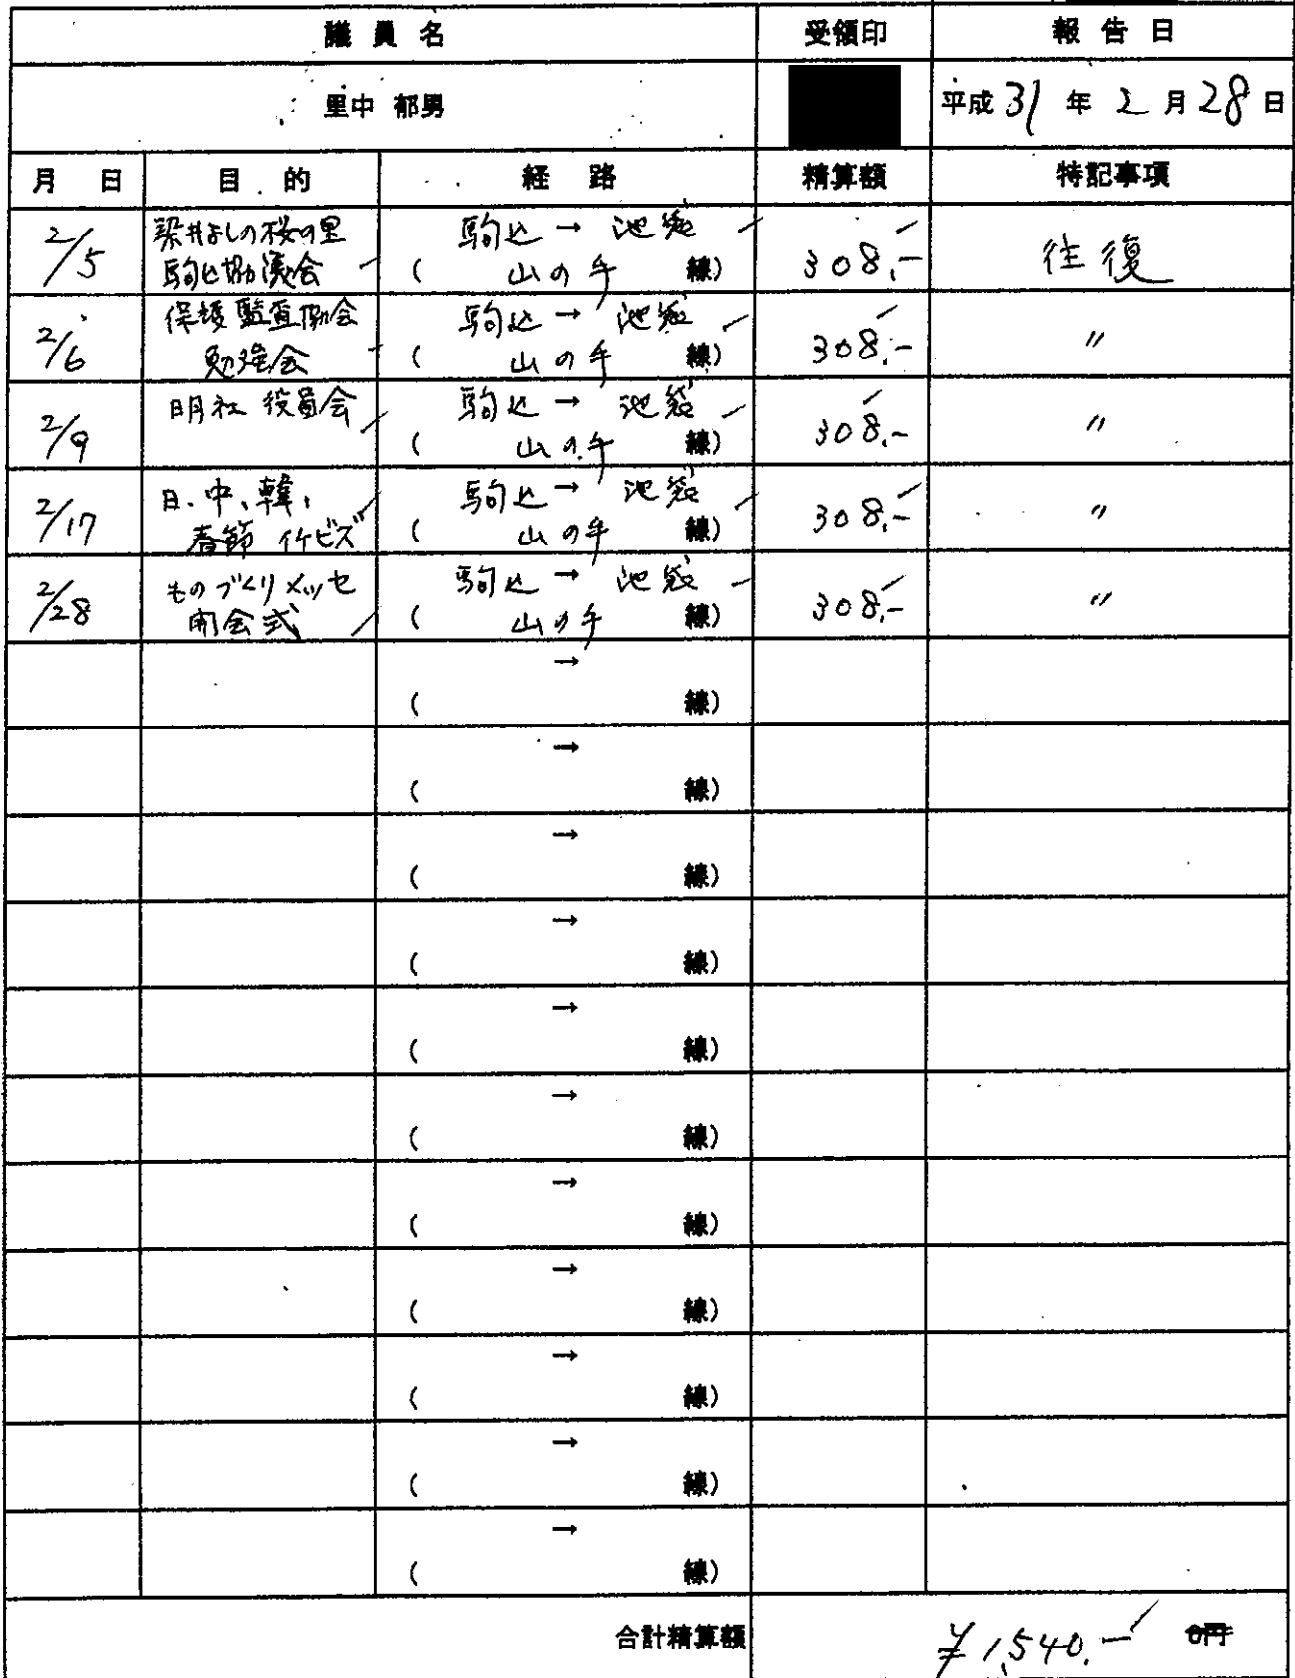 議員名 受領印 報告日
里中 郁男 平成31年2月28日
月 日 目 的 経 路 精算額 特記事項
2/5 染井よしの桜の里 駒込 → 池袋
駒込協議会 ( 山の手 線) 308.- 往復
2/6 保護監査 駒込 → 池袋
勉強会 ( 山の手 線) 308.- 〃
2/9 明社 役員会 駒込 → 池袋
( 山の手 線) 308.- 〃
2/17 日、中、韓、 駒込 → 池袋
春節 ( 山の手 線) 308.- 〃
2/28 ものづくりメッセ 駒込 → 池袋
開会式 ( 山の手 線) 308.- 〃
→
( 線)
→
( 線)
→
( 線)
→
( 線)
→
( 線)
→
( 線)
→
( 線)
→
( 線)
→
( 線)
→
( 線)
→
( 線)
合計精算額 ¥1,540.- 0円